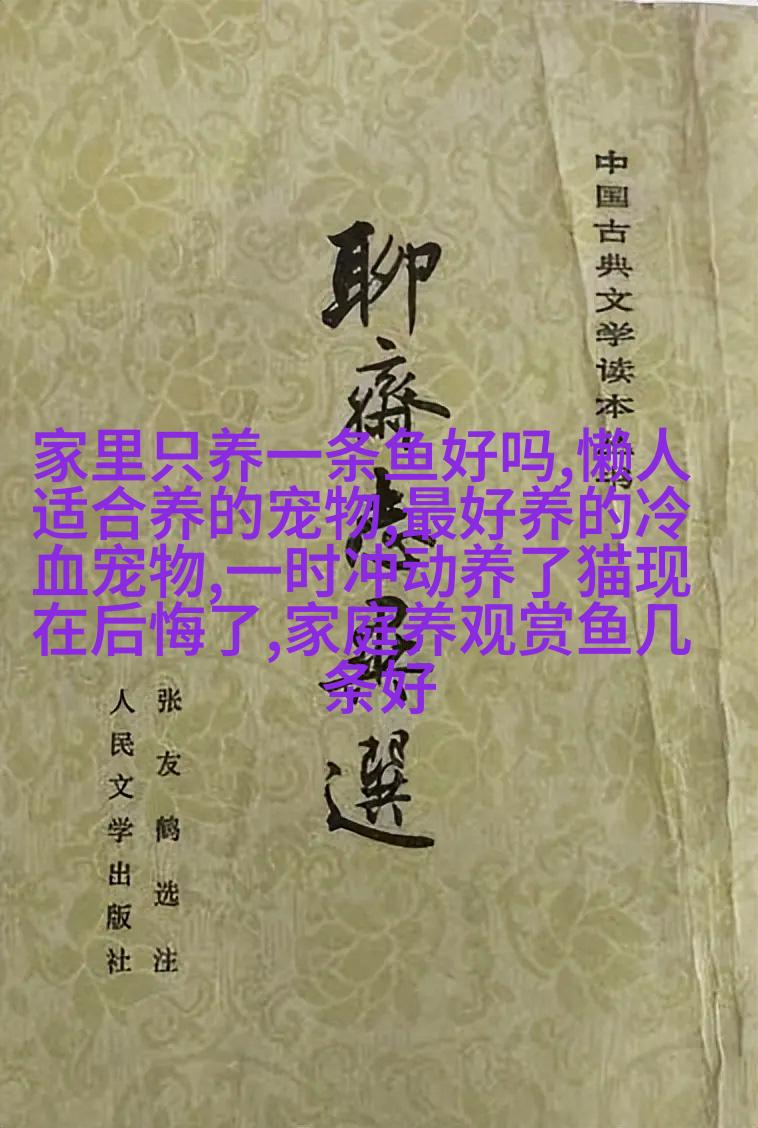 中国古典文学读本丛书
聊齋志異選
家里只养一条鱼好吗,懒人
适合养的宠物,最好养的冷
血宠物,一时冲动养了猫现
在后悔了,家庭养观赏鱼几
条好
张友鹤选注
人民文学出版社